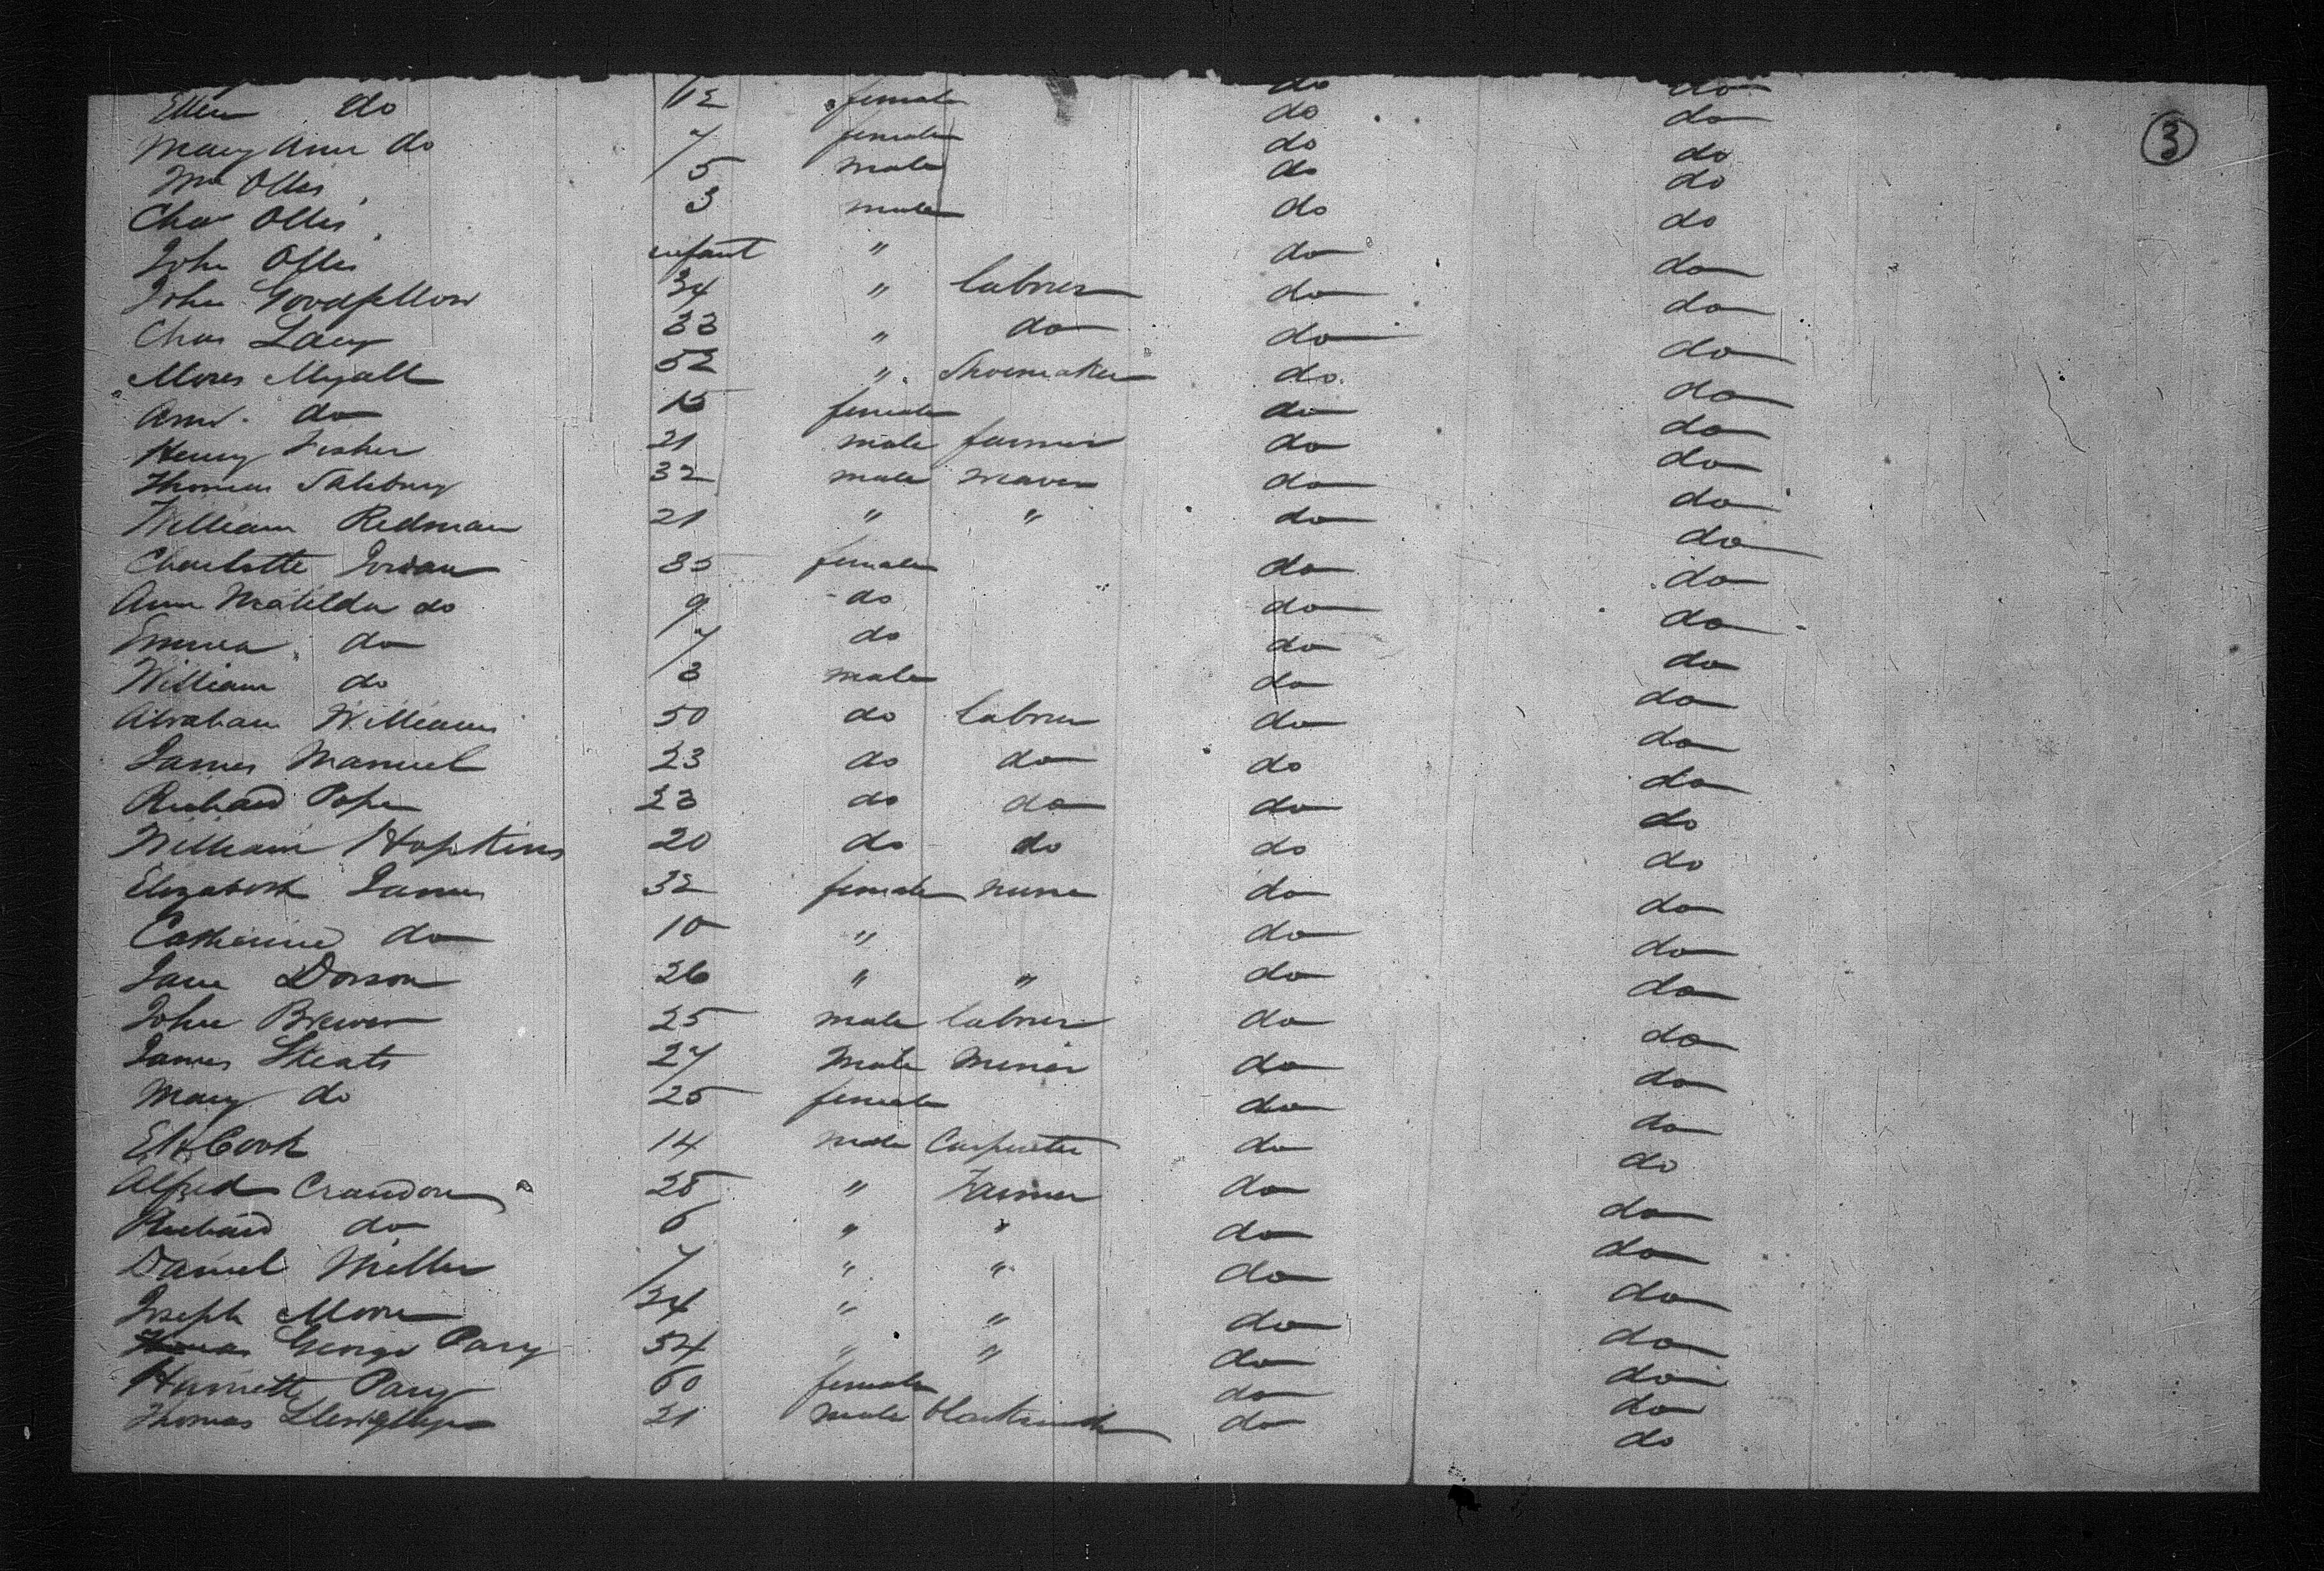 do do
Ellen do 12 female do do
Mary Ann do 7 female do do
Wm Ollis 5 male do do
Chas Ollis 3 male do do
John Ollis infant " do do
John Goodfellow 34 " labrer do do
Chas Lacy 33 " do do do
Moses Myall 52 " Shoemaker do do
Ann do 15 female do do
Henry Fisher 21 male farmer do do
Thomas Salsbury 32 male weaver do do
William Redman 21 " " do do
Charlotte 35 female do do
Ann Matilda do 9 do do do
Emma do 7 do do do
William do 3 male do do
Abraham Williams 50 do labrer do do
James Manuel 23 do do do do
Richard Pope 23 do do do do
William Hopkins 20 do do do do
Elizabeth James 32 female do do
Catherine do 10 " do do
Jane Dorson 26 " " do do
John Brewer 25 male labrer do do
James Skeats 27 male miner do do
Mary do 25 female do do
Eli Cook 14 male Carpenter do do
Alfred Crandon 28 " Farmer do do
Richard do 6 " " do do
Daniel Miller 7 " " do do
Joseph Moore 34 " " do do
George Pary 54 " " do do
Harriette Pary 60 female do do
Thomas 21 male blacksmith do do
3